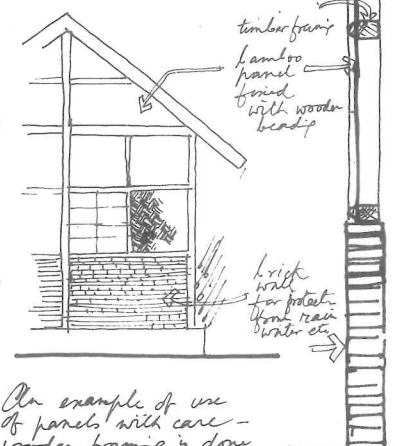 timber framing
bamboo
panel
fixed
with wooden
beading
brick
wall
for protect-
from rain
water etc
An example of use
of panels with care -
wooden framing is done